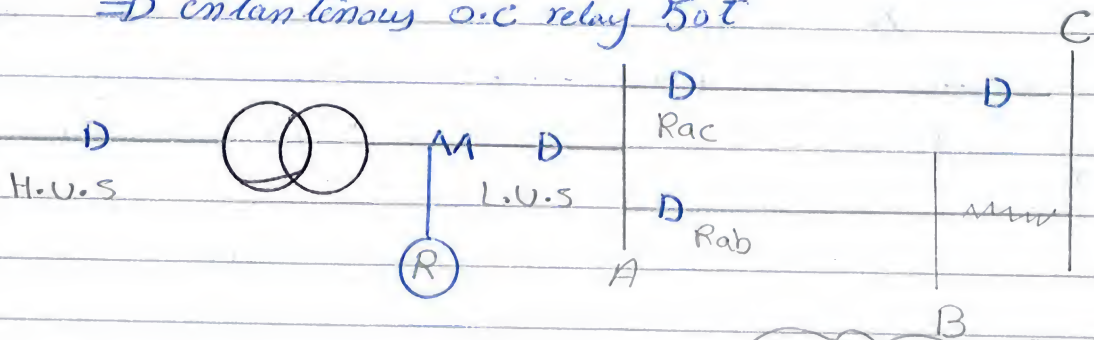 ⇒ entantenous o.c relay 50t
C
D D
Rac
D D
H.V.S L.V.S
D
Rab
R
A
B